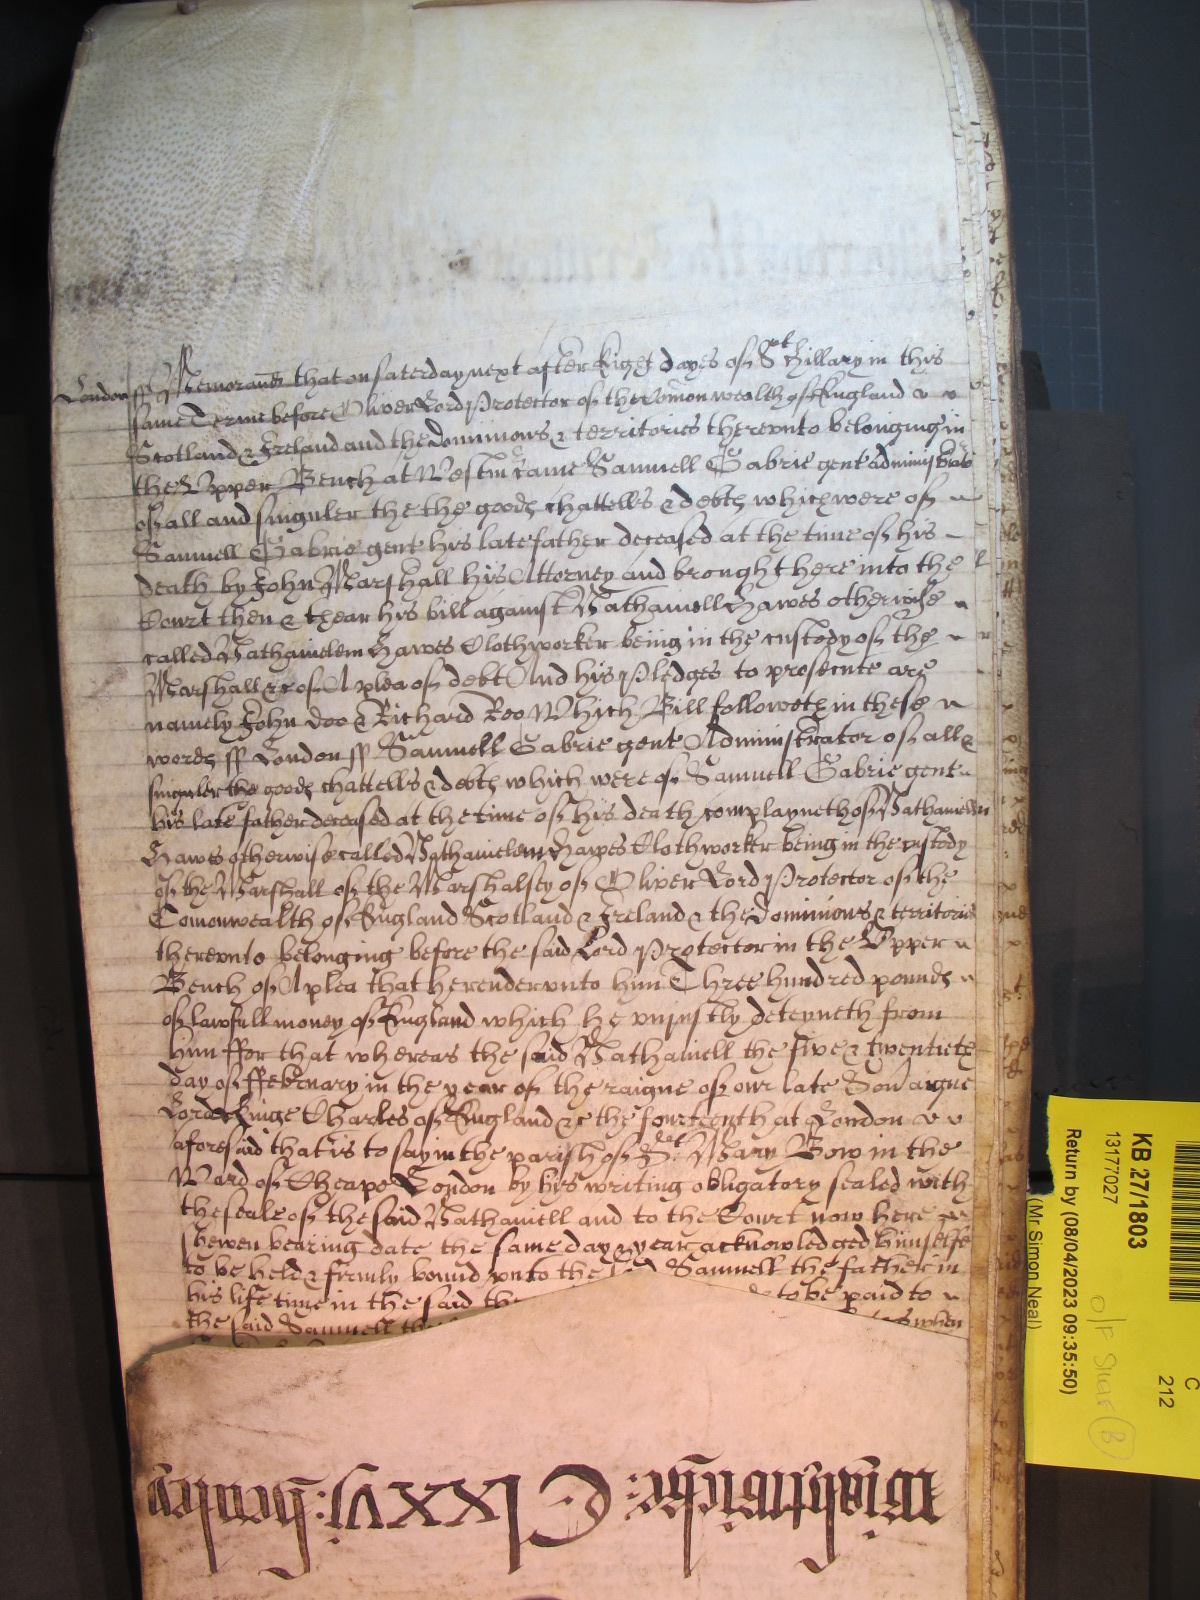 London ss Memorand that on Saterday next after Eight dayes of St Hillary in this
same Terme before Oliver Lord Protector of the Comonwealth of England
Scotland & Ireland and the Dominions & territories therevnto belonging in
the Vpper Bench at Westm came Samuell Gabrie gent administrator
of all and singuler the the goods chattells & debts which were of
Samuell Gabrie gent his late father deceased at the time of his
death by John Marshall his Attorney and brought here into the
Court then & thear his bill against Nathaniell Hawes otherwise
called Nathanielem Hawes Clothworker being in the custody of the
Marshall &c of A plea of debt And his Pledges to prosecute are
namely John Doo & Richard Roo Which Bill followeth in these
words ss London ss Samuell Gabrie gent Administrator of all &
singuler the goods chattells & debts which were of Samuell Gabrie gent
his late father deceased at the time of his death complayneth of Nathanielem
Hawes otherwise called Nathanielem Hawes Clothworker being in the custody
of the Marshall of the Marshalsey of Oliver Lord Protector of the
Comonwealth of England Scotland & Ireland & the Dominions & territories
therevnto belonging before the said Lord Protector in the Vpper
Bench of A plea that he render vnto him Three hundred pounds
of lawfull money of England which he vniustly deteyneth from
him ffor that whereas the said Nathaniell the five & twentieth
day of ffebruary in the year of the raigne of our late Souaigne
Lord Kinge Charles of England &c the fourteenth at London
aforesaid that is to say in the parish of St Mary Bow in the
Ward of Cheape London by his writing obligatory sealed with
the seale of the said Nathaniell and to the Court now here
shewen bearing date the same day & year acknowledged himselfe
to be held & firmly bound vnto the said Samuell the father in
his life time in the said to be paid to
the said Samuell when
Clxxvj
KB 27/1803
13177027
Return by (08/04/2023 09:35:50)
(Mr Simon Neal)
C
212
O/F Shelf B